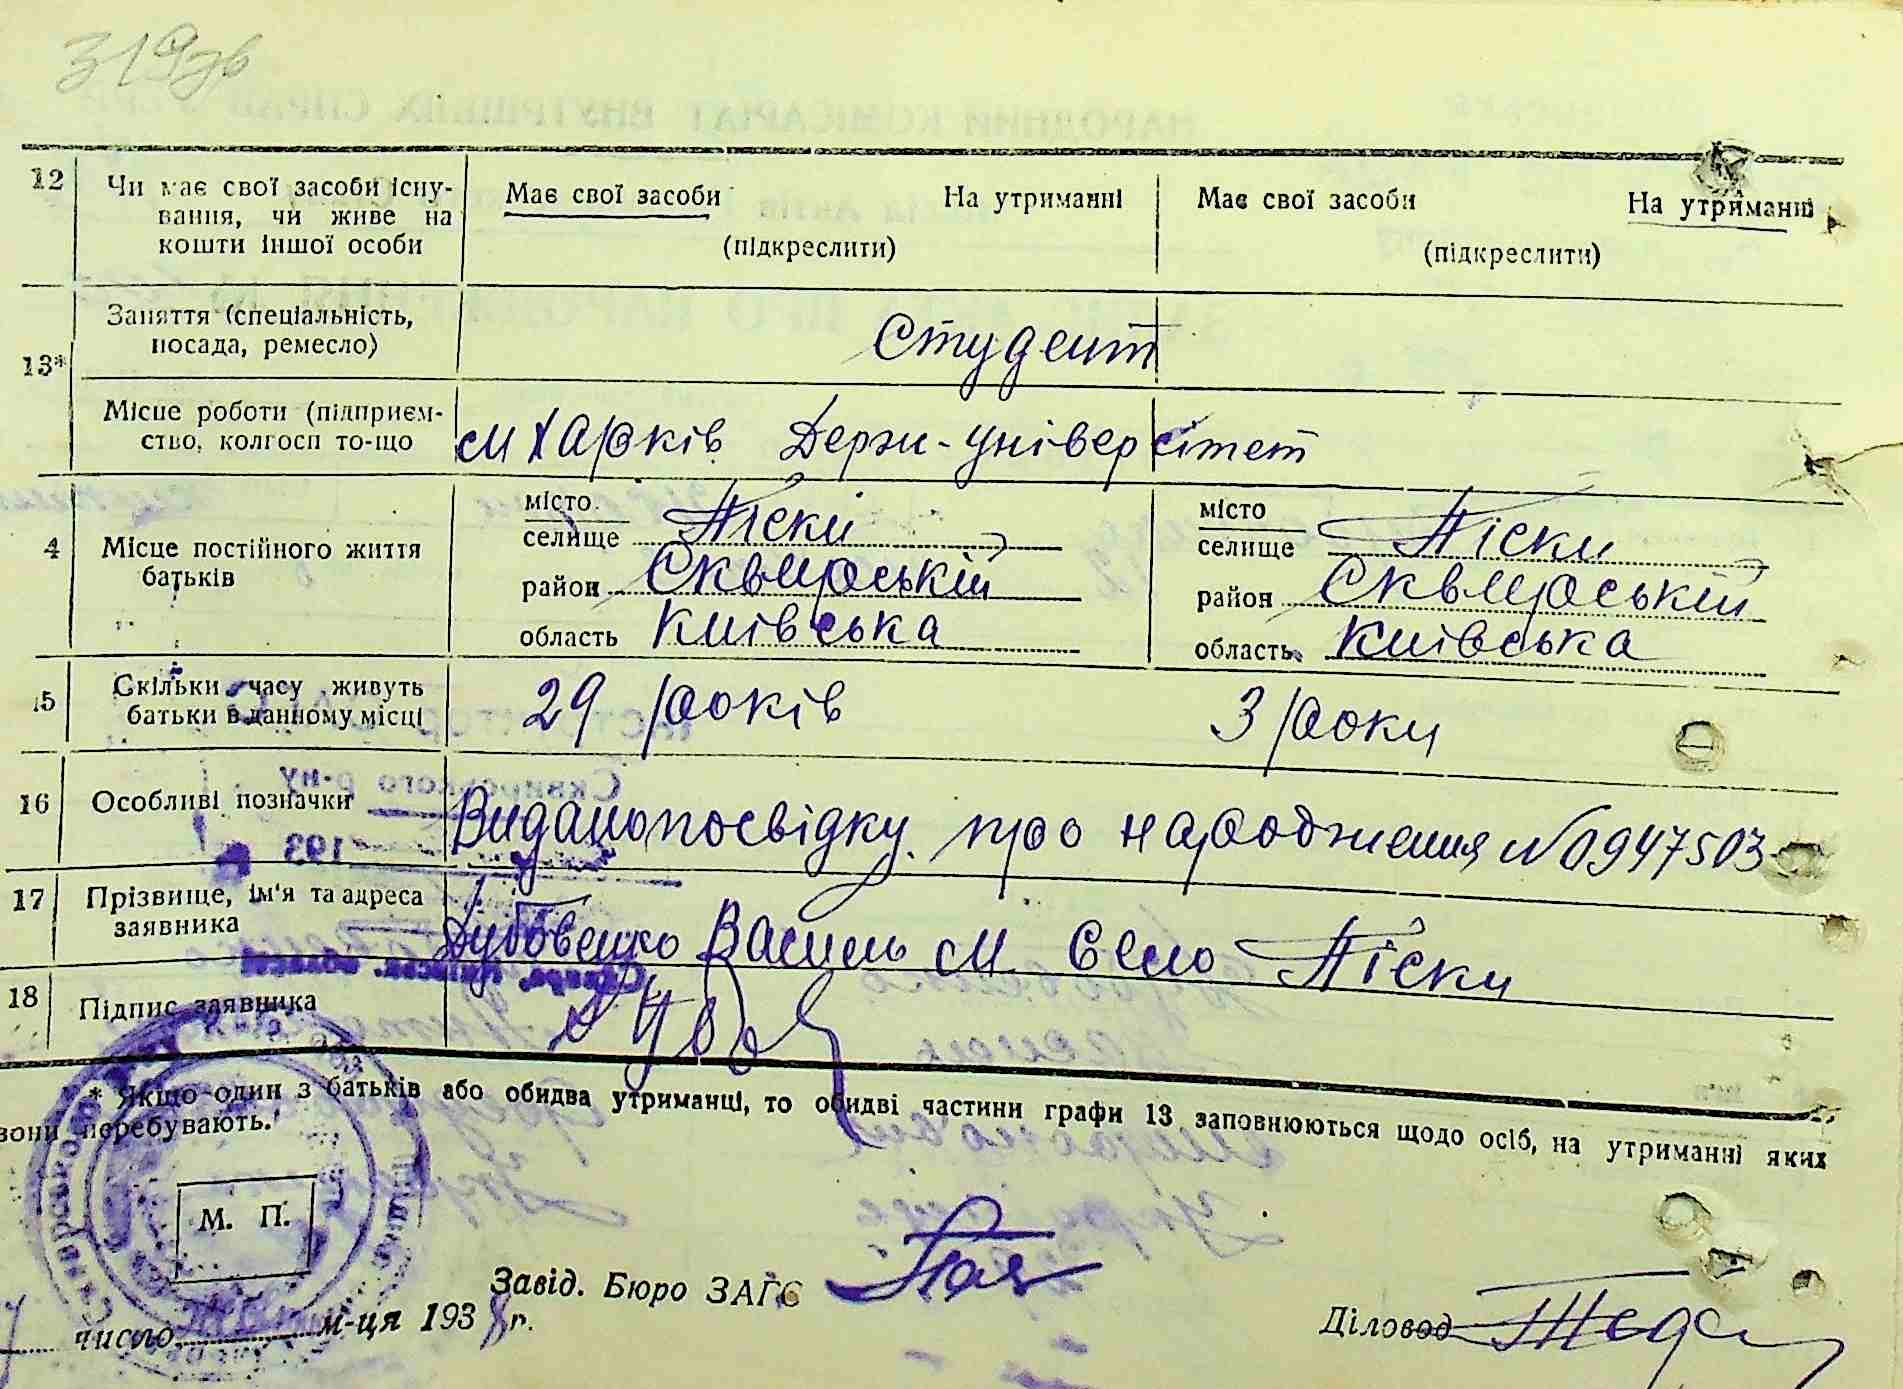 319зв
12 Чи має свої засоби існу-
вання, чи живе на
кошти іншої особи
Має свої засоби На утриманні
(підкреслити)
Має свої засоби На утриманні
(підкреслити)
13* Заняття (спеціальність,
посада, ремесло)
Студент
Місце роботи (підприєм-
ство, колгосп то-що
м Харків Держ-універсітет
4 Місце постійного життя
батьків
місто
селище Піски
район Сквирській
область Київська
місто
селище Піски
район Сквирській
область Київська
15 Скільки часу живуть
батьки в данному місці
29 років
3 роки
16 Особливі позначки
Видано посвідку про народження № 0947503
17 Прізвище, ім'я та адреса
заявника
Дубовенко Василь М. село Піски
18 Підпис заявника
* Якщо один з батьків або обидва утриманці, то обидві частини графи 13 заповнюються щодо осіб, на утриманні яких
вони перебувають.
М. П.
Завід. Бюро ЗАГС
Діловод
число м-ця 1938 р.